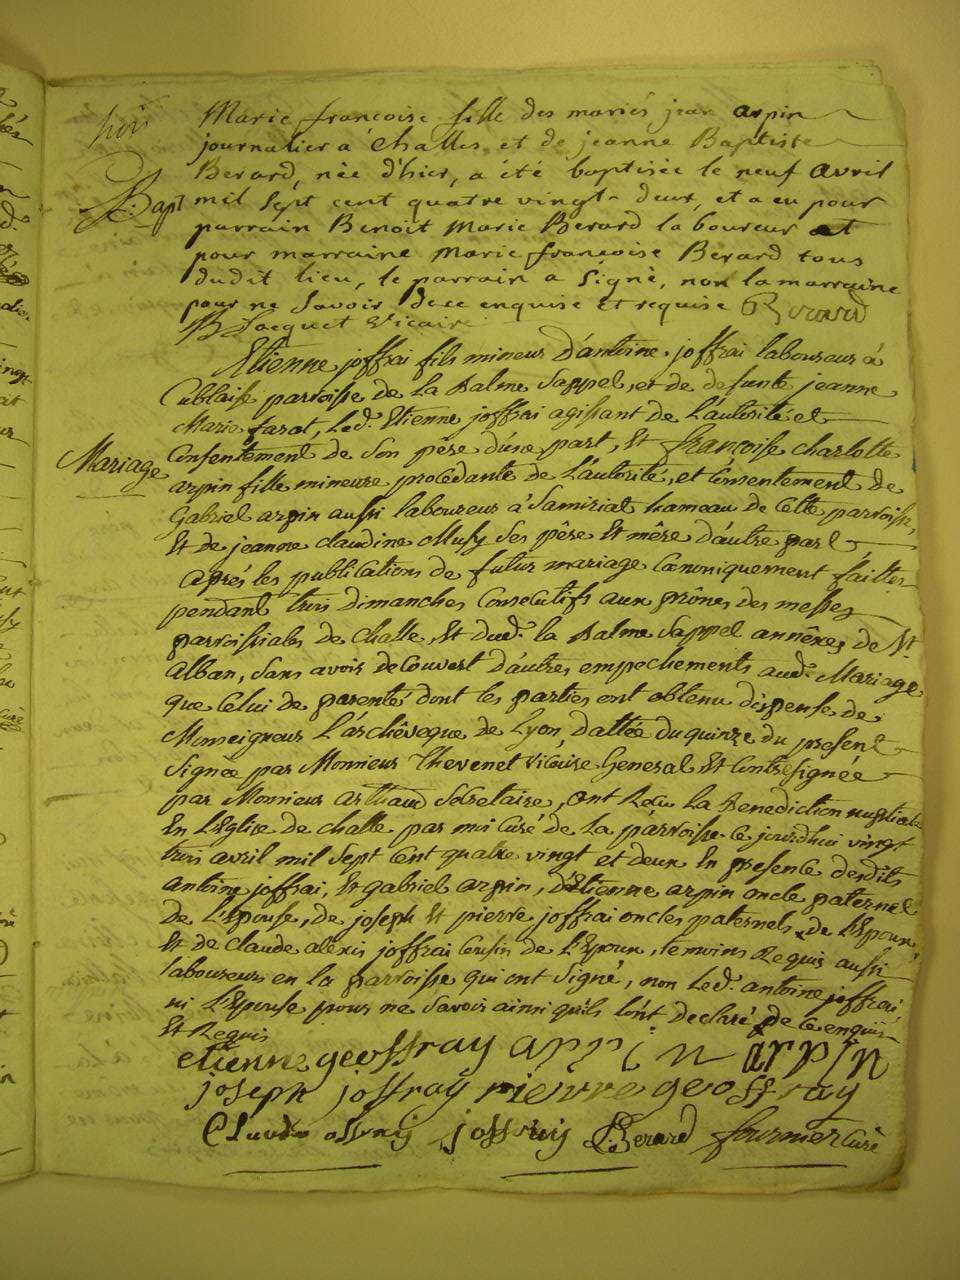 Bapt
Marie françoise fille des mariés jean arpin
journalier à Challes et de jeanne Baptiste
Berard, née d'hier, a été baptisée le neuf avril
mil sept cent quatre vingt-deux, et a eu pour
parrain Benoit Marie Berard laboureur et
pour marraine Marie françoise Berard tous
dudit lieu, le parrain a signé, non la marraine
pour ne savoir de ce enquise et requise Berard
Jacquet vicaire
Mariage
Etienne joffrai fils mineur d'antoine joffrai laboureur à
Cublaise parroisse de La Balme Sappel, et de defunte jeanne
Marie farat, Led. Etienne joffrai agissant de L'autorité et
Consentement de Son père d'une part, Et françoise charlotte
arpin fille mineure procedante de L'autorité, et Consentement de
Gabriel arpin aussi laboureur à Samiriat hameau de Cette parroisse,
Et de jeanne claudine Musy Ses père Et mère d'autre part
après les publications de futur mariage Canoniquement faittes
pendant trois Dimanches Consecutifs aux prônes des messes
parroissiales de challe, Et dud. la Balme Sappel annexe, de St.
Alban, Sans avoir decouvert d'autres empechements aud. Mariage
que Celui de parenté dont les parties ont obtenu dispense de
Monseigneur L'archêveque de Lyon, dattée du quinze du present
Signée par Monsieur Thevenet Vicaire General, Et Contresignée
par Monsieur arthaud Secretaire, Ont Reçu la Benediction nuptiale
En L'Eglise de challe par moi Curé de La parroisse ce jourdhui vingt
trois avril mil Sept Cent quatre vingt et deux En presence desdits
Antoine joffrai, Et gabriel arpin, d'Etienne arpin oncle paternel
de L'Epouse, de joseph Et pierre joffrai oncles paternels de L'Epoux
Et de claude alexis joffrai Cousin de L'Epoux, temoins Requis aussi
laboureurs en la parroisse qui ont Signé, non Led. antoine joffrai,
ni L'Epouse pour ne Savoir ainsi qu'ils l'ont declaré de ce enquis
Et Requis
etienne geoffray arpin arpin
joseph joffray pierre geoffray
Claude joffray Berard fournier Curé